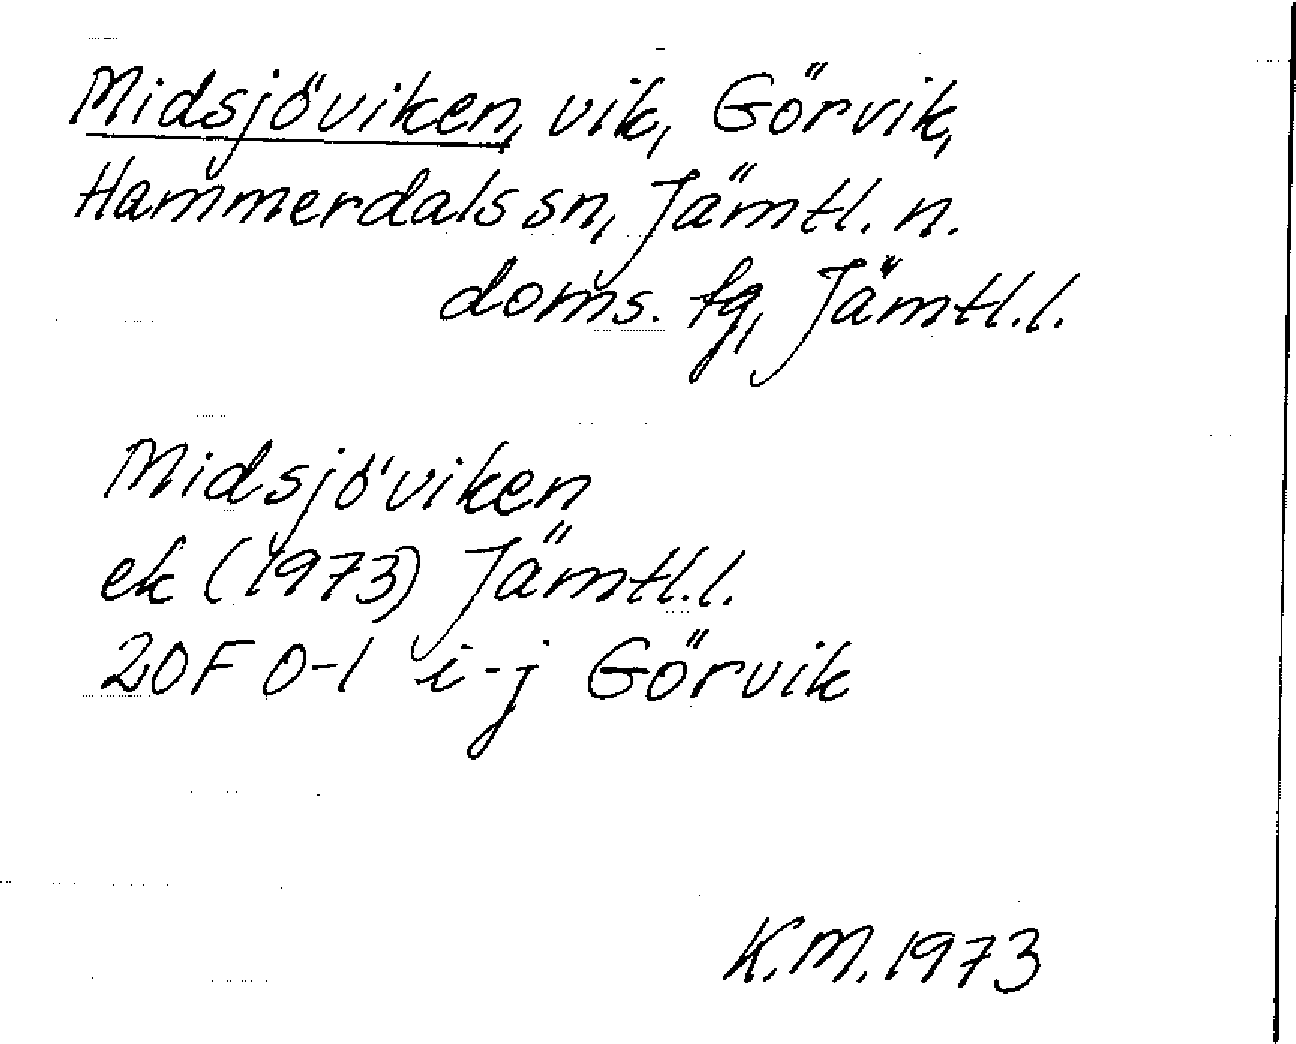 Midsjöviken, vik, Görvik,
Hammerdals sn, Jämtl. n.
doms. fg, Jämtl.l.
Midsjöviken
ek (1973) Jämtl.l.
20F 0-1 i-j Görvik
K.M. 1973